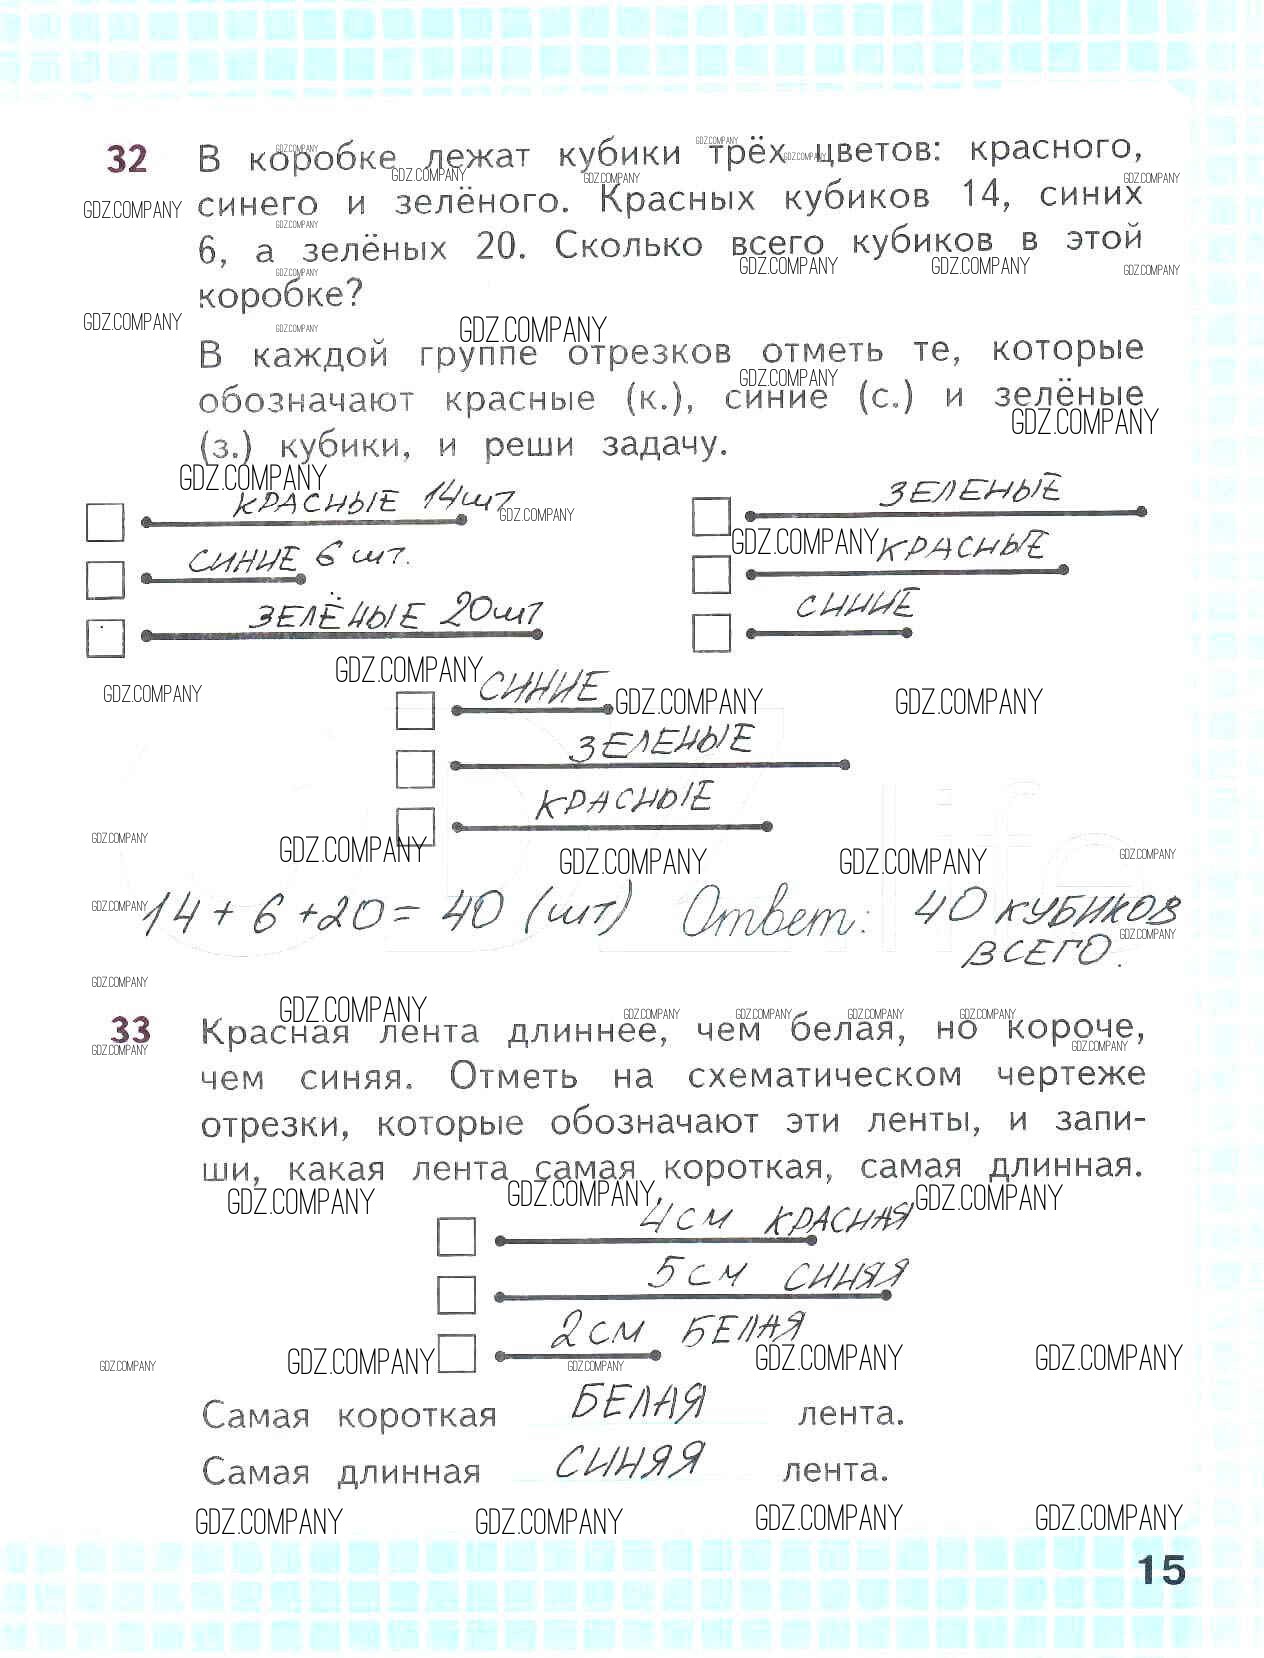 32 В коробке лежат кубики трёх цветов: красного,
синего и зелёного. Красных кубиков 14, синих
6, а зелёных 20. Сколько всего кубиков в этой
коробке?
В каждой группе отрезков отметь те, которые
обозначают красные (к.), синие (с.) и зелёные
(з.) кубики, и реши задачу.
КРАСНЫЕ 14шт
СИНИЕ 6 шт.
ЗЕЛЁНЫЕ 20шт
ЗЕЛЕНЫЕ
КРАСНЫЕ
СИНИЕ
СИНИЕ
ЗЕЛЕНЫЕ
КРАСНЫЕ
14 + 6 + 20 = 40 (шт) Ответ: 40 КУБИКОВ
ВСЕГО.
33 Красная лента длиннее, чем белая, но короче,
чем синяя. Отметь на схематическом чертеже
отрезки, которые обозначают эти ленты, и запи-
ши, какая лента самая короткая, самая длинная.
4 см КРАСНАЯ
5 см СИНЯЯ
2 см БЕЛАЯ
Самая короткая БЕЛАЯ лента.
Самая длинная СИНЯЯ лента.
GDZ.COMPANY
GDZ.life
15